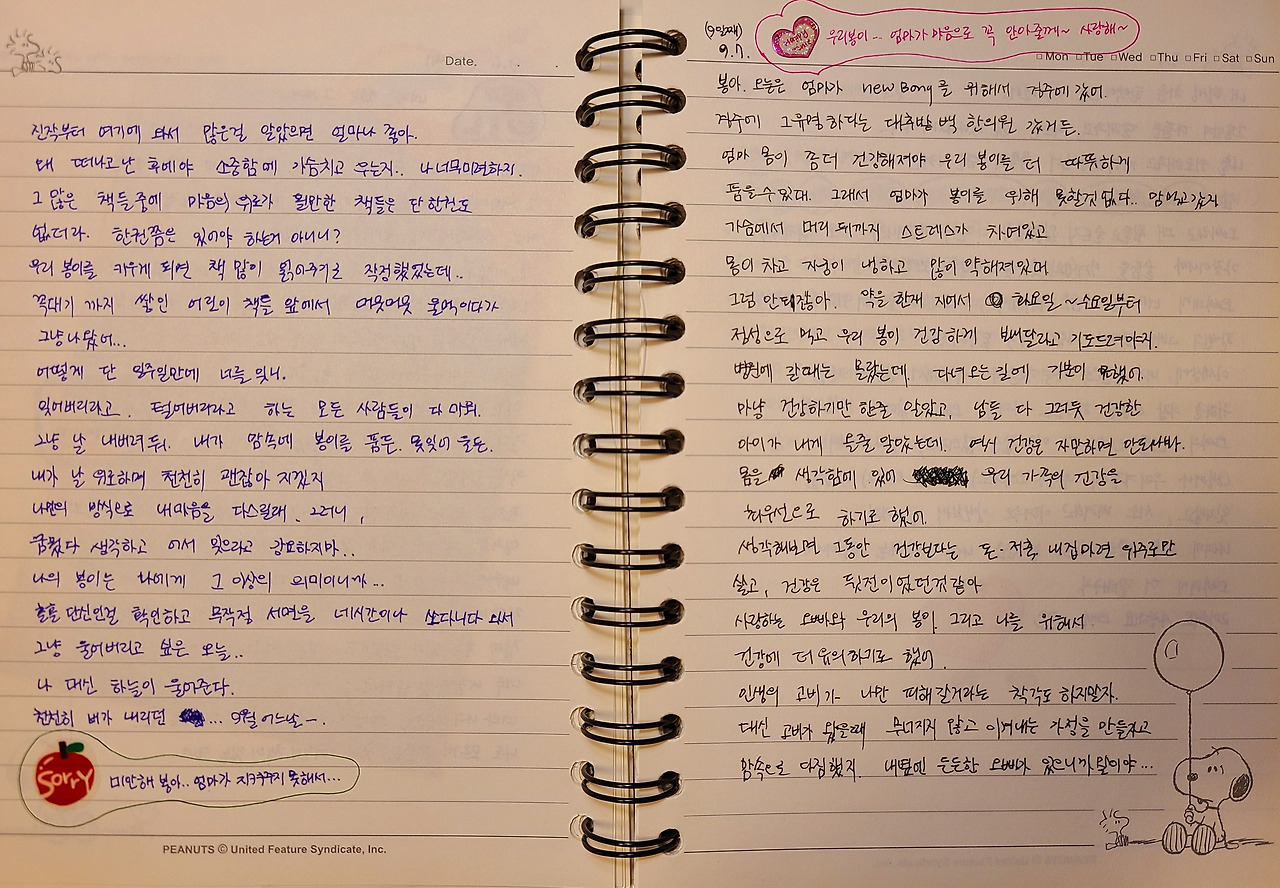 Date. . .
진작부터 여기에 와서 많은걸 알았으면 얼마나 좋아.
왜 떠나고난 후에야 소중함에 가슴치고 우는지.. 나 너무미련하지.
그 많은 책들중에 마음의 위로가 될만한 책들은 단 한권도
없더라. 한권쯤은 있어야 하는거 아니니?
우리 봉이를 키우게 되면 책 많이 읽어주기로 작정했었는데..
꼭대기 까지 쌓인 어린이 책들 앞에서 머뭇머뭇 울먹이다가
그냥나왔어...
어떻게 단 일주일만에 너를 잊니.
잊어버리라고. 털어버리라고 하는 모든 사람들이 다 미워.
그냥 날 내버려둬. 내가 맘속에 봉이를 품든. 못잊어 울든.
내가 날 위로하며 천천히 괜찮아 지겠지
나만의 방식으로 내마음을 다스릴래. 그러니,
꿈꿨다 생각하고 어서 잊으라고 강요하지마..
나의 봉이는 나에게 그 이상의 의미이니까...
홀몸인걸 확인하고 무작정 서면을 네시간이나 쏘다니다 와서
그냥 울어버리고 싶은 오늘..
나 대신 하늘이 울어준다.
천천히 비가 내리던 ... 9월 어느날 -.
Sorry
미안해 봉아.. 엄마가 지켜주지 못해서...
PEANUTS © United Feature Syndicate, Inc.
(9일째)
Happy
우리봉이... 엄마가 마음으로 꼭 안아줄께~ 사랑해~
9.7.
□Mon □Tue □Wed □Thu □Fri □Sat □Sun
봉아. 오늘은 엄마가 new Bong을 위해서 경주에 갔어.
경주에 그유명하다는 대추밭 백 한의원 갔거든.
엄마 몸이 좀더 건강해져야 우리 봉이를 더 따뜻하게
품을수있대. 그래서 엄마가 봉이를 위해 못할것없다.. 맘먹고갔지
가슴에서 머리 위까지 스트레스가 차여있고
몸이 차고 자궁이 냉하고 많이 약해져있대
그럼 안되잖아. 약을 한재 지어서 화요일~수요일부터
정성으로 먹고 우리 봉이 건강하게 보내달라고 기도드려야지.
병원에 갈때는 몰랐는데. 다녀오는길에 기분이 했어.
마냥 건강하기만 한줄 알았고, 남들 다 그러듯 건강한
아이가 내게 올줄 알았는데. 역시 건강은 자만하면 안되나봐.
몸을 생각함에 있어 우리 가족의 건강을
최우선으로 하기로 했어.
생각해보면 그동안 건강보다는 돈·저축, 내집마련 위주로만
살고, 건강은 뒷전이었던것같아
사랑하는 오빠와 우리의 봉이, 그리고 나를 위해서.
건강에 더 유의하기로 했어.
인생의 고비가 나만 피해갈거라는 착각도 하지말자.
대신 고비가 왔을때 무너지지 않고 이겨내는 가정을 만들자고
맘속으로 다짐했지. 내옆엔 든든한 오빠가 있으니까말이야...